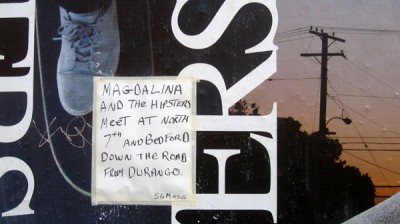 MAGDALINA
AND THE HIPSTERS
MEET AT NORTH
7TH AND BEDFORD
DOWN THE ROAD
FROM DURANGO.
ERS